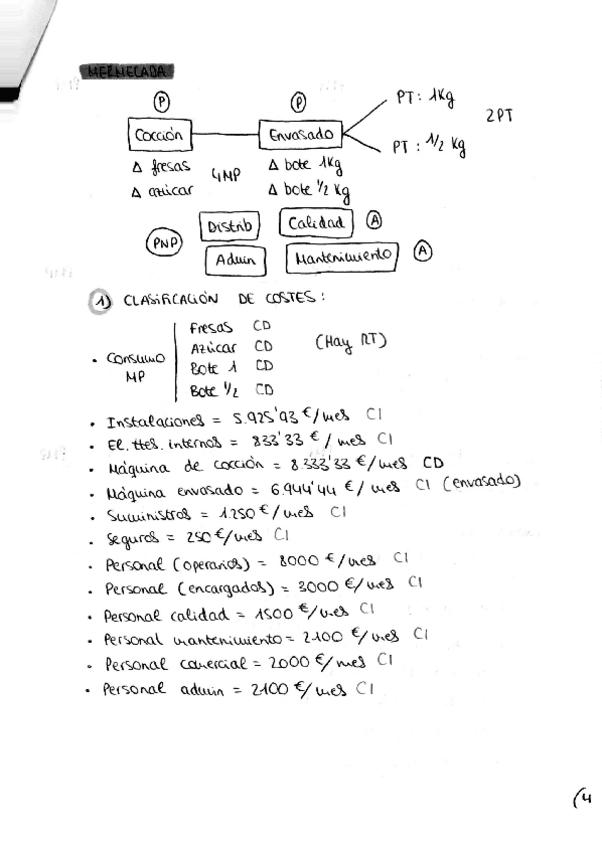 MERMELADA
P P
PT: 1Kg
Cocción Envasado 2PT
PT: 1/2 Kg
Δ fresas Δ bote 1Kg
4MP
Δ azúcar Δ bote 1/2 Kg
Distrib Calidad A
PNP
Admin Mantenimiento A
1) CLASIFICACIÓN DE COSTES:
Fresas CD
Azúcar CD (Hay RT)
• Consumo MP
Bote 1 CD
Bote 1/2 CD
• Instalaciones = 5.925'93 €/mes CI
• El. ttes. internos = 833'33 €/mes CI
• Máquina de cocción = 8.333'33 €/mes CD
• Máquina envasado = 6.944'44 €/mes CI (envasado)
• Suministros = 1.250 €/mes CI
• Seguros = 250 €/mes CI
• Personal (operarios) = 8000 €/mes CI
• Personal (encargados) = 3000 €/mes CI
• Personal calidad = 1500 €/mes CI
• Personal mantenimiento = 2100 €/mes CI
• Personal comercial = 2000 €/mes CI
• Personal admin = 2100 €/mes CI
(4